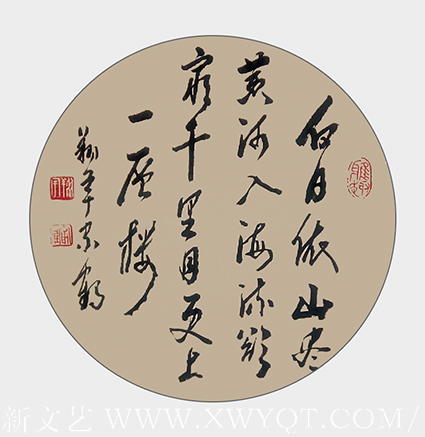 白日依山尽
黄河入海流欲
穷千里目更上
一层楼
新文艺 WWW.XWYQT.COM/